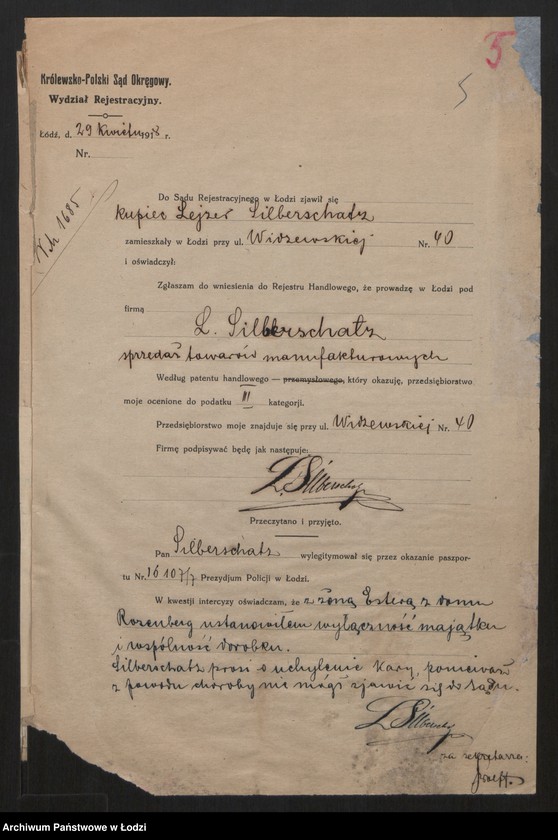 5
5
Królewsko-Polski Sąd Okręgowy.
Wydział Rejestracyjny.
Łódź, d. 29 Kwietn 1918 r.
Nr.
R.H. 1685
Do Sądu Rejestracyjnego w Łodzi zjawił się
Kupiec Lejzer Silberschatz
zamieszkały w Łodzi przy ul. Widzewskiej Nr. 40
i oświadczył:
Zgłaszam do wniesienia do Rejestru Handlowego, że prowadzę w Łodzi pod
firmą
L. Silberschatz
sprzedaż towarów manufakturowych
Według patentu handlowego — przemysłowego, który okazuję, przedsiębiorstwo
moje ocenione do podatku III kategorji.
Przedsiębiorstwo moje znajduje się przy ul. Widzewskiej Nr. 40
Firmę podpisywać będę jak następuje:
L. Silberschatz
Przeczytano i przyjęto.
Pan Silberschatz wylegitymował się przez okazanie paszpor-
tu Nr. 16107/7 Prezydjum Policji w Łodzi.
W kwestji intercyzy oświadczam, że z żoną Esterą z domu
Rozenberg ustanowiłem wyłączność majątku
i wspólność dorobku.
Silberschatz prosi o uchylenie kary, ponieważ
z powodu choroby nie mógł zjawić się do sądu.
L Silbersch
za sekretarza:
Archiwum Państwowe w Łodzi